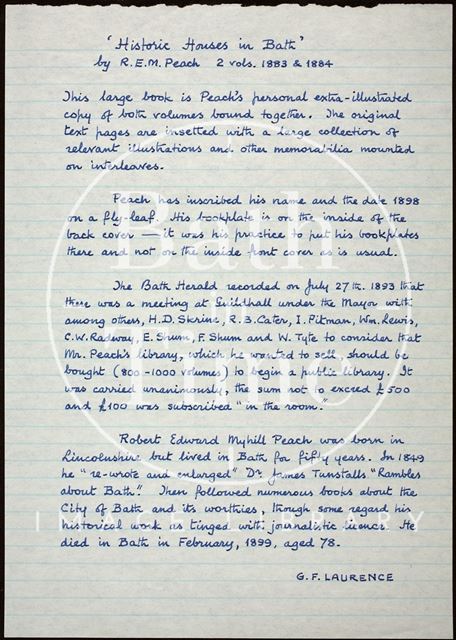 'Historic Houses in Bath'
by R.E.M. Peach 2 vols. 1883 & 1884
This large book is Peach's personal extra-illustrated
copy of both volumes bound together. The original
text pages are insetted with a large collection of
relevant illustrations and other memorabilia mounted
on interleaves.
Peach has inscribed his name and the date 1898
on a fly-leaf. His bookplate is on the inside of the
back cover — it was his practice to put his bookplates
there and not on the inside front cover as is usual.
The Bath Herald recorded on July 27th. 1893 that
there was a meeting at Guildhall under the Mayor with
among others, H.D. Skrine, R.B. Cater, I. Pitman, Wm. Lewis,
C.W. Radway, E. Shum, F. Shum and W. Tyte to consider that
Mr. Peach's library, which he wanted to sell, should be
bought (800-1000 volumes) to begin a public library. It
was carried unanimously, the sum not to exceed £500
and £100 was subscribed "in the room."
Robert Edward Myhill Peach was born in
Lincolnshire but lived in Bath for fifty years. In 1849
he "re-wrote and enlarged" Dr. James Tunstalls "Rambles
about Bath". Then followed numerous books about the
City of Bath and its worthies, though some regard his
historical work as tinged with journalistic licence. He
died in Bath in February, 1899, aged 78.
G.F. LAURENCE
Bath
in
Time
IMAGE LIBRARY